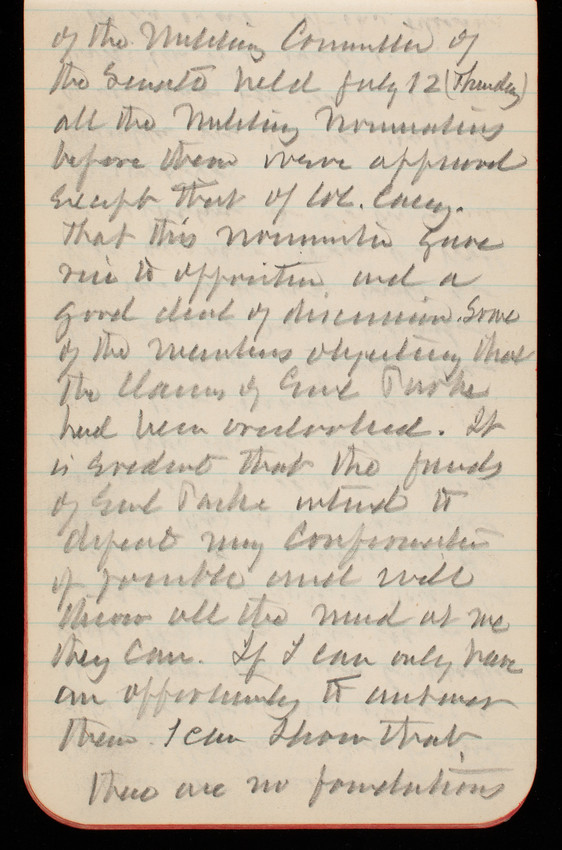 of the Military Committee of
the Senate held July 12 (Thursday)
all the Military Nominations
before them were approved
except that of Col. Casey.
That this nomination gave
rise to opposition and a
good deal of discussion. Some
of the members objecting that
the claims of Genl Parke
had been overlooked. It
is evident that the friends
of Genl Parke intend to
defeat my Confirmation
if possible and will
throw all the mud at me
they can. If I can only have
an opportunity to answer
them I can show that
there are no foundations